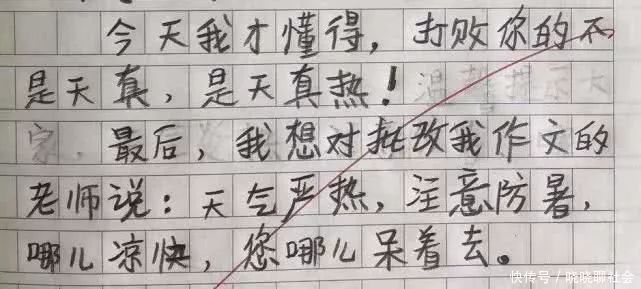 今天我才懂得，打败你的不
是天真，是天真热！温馨提示大
家，最后，我想对批改我作文的
老师说：天气严热，注意防暑，
哪儿凉快，您哪儿呆着去。
快传号／晓晓聊社会